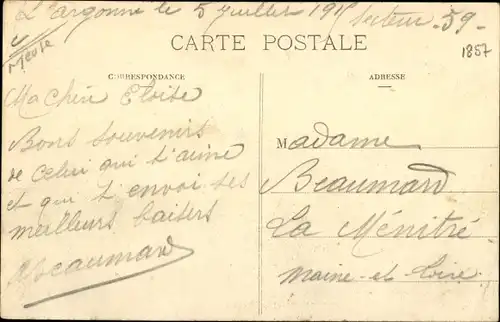 L'argonne le 5 Juillet 191 Secteur 59
Meuse
1857
CARTE POSTALE
CORRESPONDANCE
ADRESSE
Ma chère Eloise
Bons souvenirs
de Celui qui t'aime
et qui t'envoi ses
meilleurs baisers
Beaumard
Madame
Beaumard
La Ménitré
Maine-et-Loire